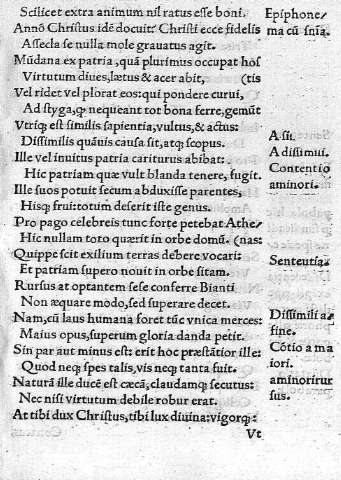 Scilicet extra animum nil ratus esse boni.
Annõ Christus idẽ docuit? Christi ecce fidelis
Assecla se nulla mole grauatus agit.
Mũdana ex patria, quã plurimus occupat hos
Virtutum diues, lætus & acer abit, (tis
Vel ridet vel plorat eos: qui pondere curui,
Ad styga, ꝗ nequeant tot bona ferre, gemũt
Vtriqꝫ est similis sapientia, vultus, & actus:
Dissimilis quãuis causa sit, atqꝫ scopus.
Ille vel inuitus patria cariturus abibat:
Hic patriam quæ vult blanda tenere, fugit.
Ille suos potuit secum abduxisse parentes,
Hisqꝫ frui: totum deserit iste genus.
Pro pago celebreis tunc forte petebat Athe⸗
Hic nullam toto quærit in orbe domũ. (nas:
Quippe scit exilium terras debere vocari:
Et patriam supero nouit in orbe sitam.
Rursus at optantem sese conferre Bianti
Non æquare modo, sed superare decet.
Nam, cũ laus humana foret tũc vnica merces:
Maius opus, superum gloria danda petit.
Sin par aut minus est: erit hoc præstãtior ille:
Quod neqꝫ spes talis, vis neqꝫ tanta fuit.
Naturã ille ducẽ est cæcã, claudamqꝫ secutus:
Nec nisi virtutum debile robur erat.
At tibi dux Christus, tibi lux diuina: vigorqꝫ:
Vt
Epiphone⸗
ma cũ sñia.
A sii.
A dissimui.
Contentio
aminori.
Sententia
Dissimili a⸗
fine.
Cõtio a ma
iori.
aminorirur
sus.